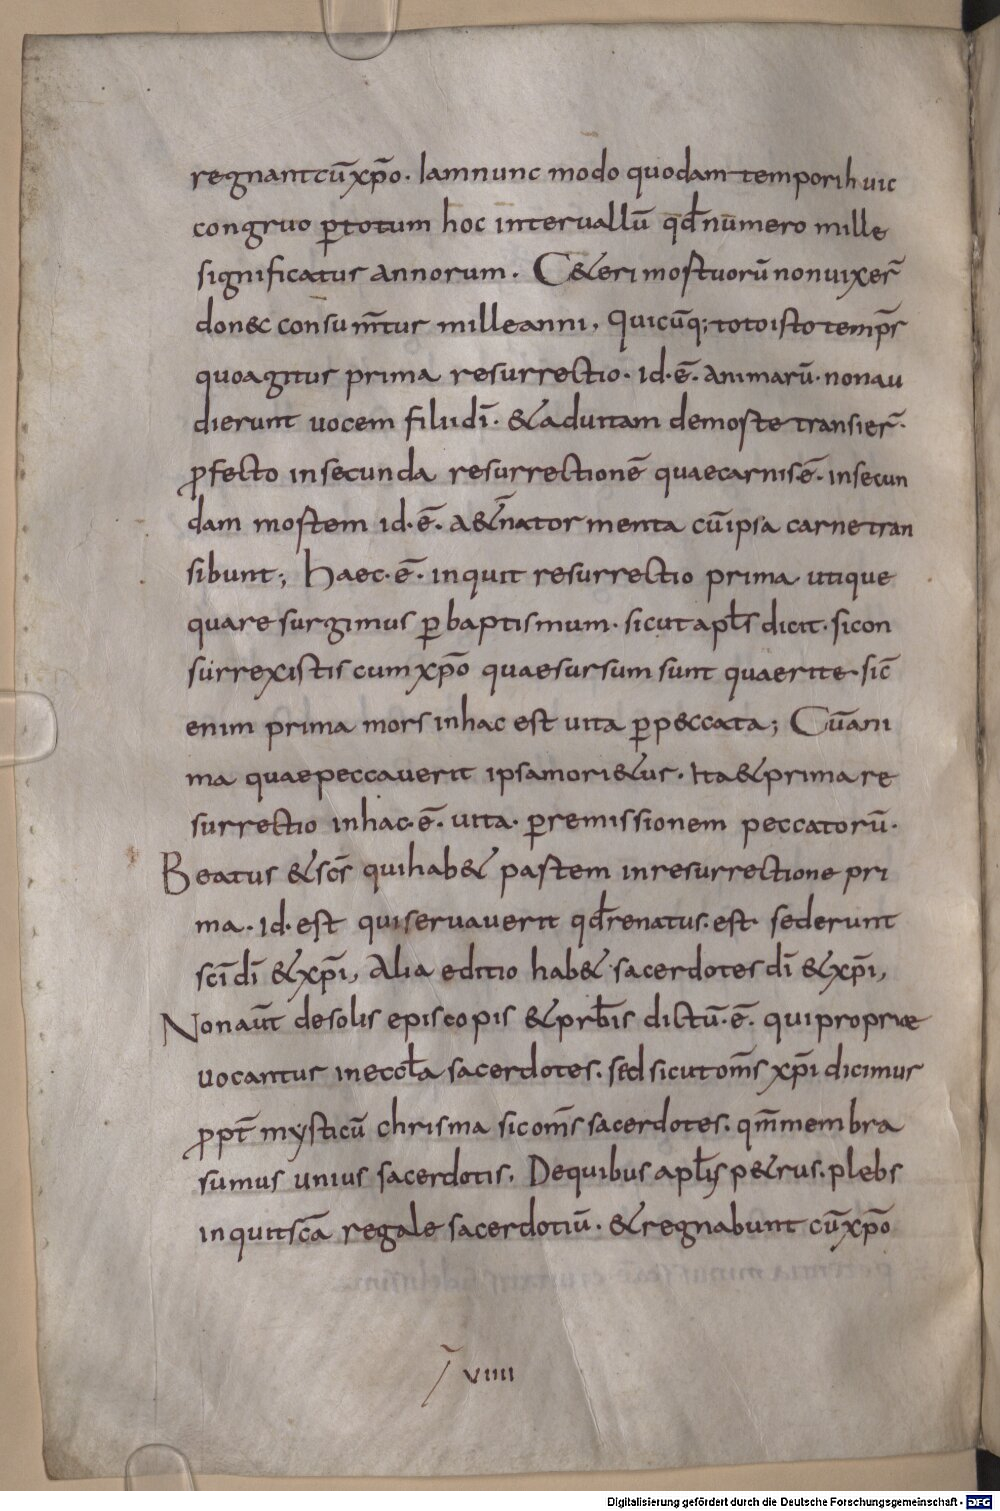 regnant cū xp̄o. Iam nunc modo quodam temporih uic
congruo ꝑ totum hoc interuallū qđ numero mille
significatur annorum. C&eri mortuorū non uixer̄
donec consum̄tur mille anni. Quicūq; toto isto temp̄r
quo agitur prima resurrectio. id. ē. animarū. non au
dierunt uocem filii dī. & ad uitam de morte transier̄.
ꝓfecto in secunda resurrectionē quae carnis ē. in secun
dam mortem id. ē. a&̄na tormenta cū ipsa carne tran
sibunt; Haec. ē. inquit resurrectio prima. utique
qua resurgimus ꝑ baptismum. sicut apłs dicit. si con
surrexistis cum xp̄o quae sursum sunt quaerite. sic̄
enim prima mors in hac est uita ꝑ peccata; Cū ani
ma quae peccauerit ipsa mori&ur. Ita & prima re
surrectio in hac. ē. uita. ꝑ remissionem peccatorū.
Beatus & sc̄s qui hab& partem in resurrectione pri
ma. id. est qui seruauerit qđ renatus. est. sed erunt
sc̄i dī & xp̄i, Alia editio hab& sacerdotes dī & xp̄i,
Non aūt de solis episcopis & prb̄is dictū. ē. qui propriae
uocantur in eccła sacerdotes. sed sicut om̄s xp̄i dicimur
ꝓpt̄ mysticū chrisma sic om̄s sacerdotes. qm̄ membra
sumus unius sacerdotis. De quibus apłs p&rus. plebs
inquit sc̄a regale sacerdotiū. & regnabunt cū xp̄o
VIIII
Digitalisierung gefördert durch die Deutsche Forschungsgemeinschaft - DFG